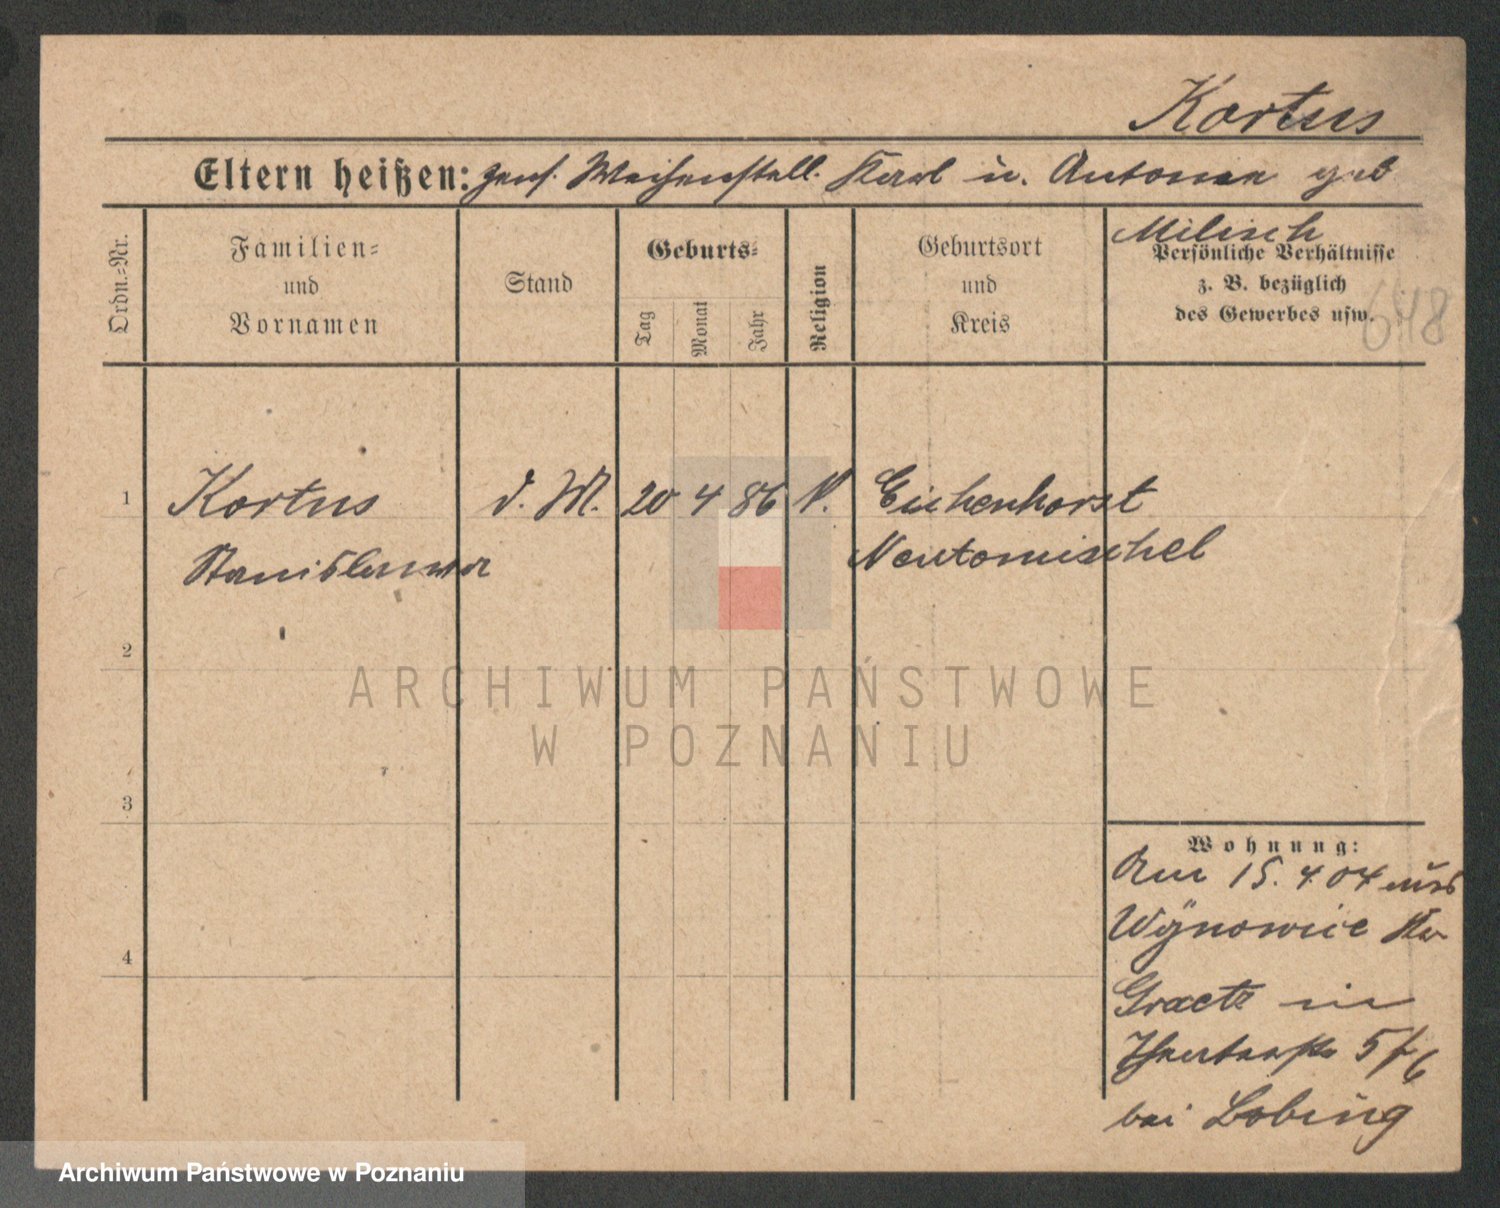 Kortus
Eltern heißen: Karl u. Antonie geb
Milisch
Ordn.-Nr.
Familien-
und
Vornamen
Stand
Geburts-
Tag
Monat
Jahr
Religion
Geburtsort
und
Kreis
Persönliche Verhältnisse
z. B. bezüglich
des Gewerbes usw.
648
1 Kortus d. M. 20 4 86 Eichenhorst
Stanislawa Neutomischel
2
3
4
ARCHIWUM PAŃSTWOWE
W POZNANIU
Wohnung:
Am 15. 4. 04 aus
Wÿnowice Kr
Graetz in
5/6
bei Lobing
Archiwum Państwowe w Poznaniu